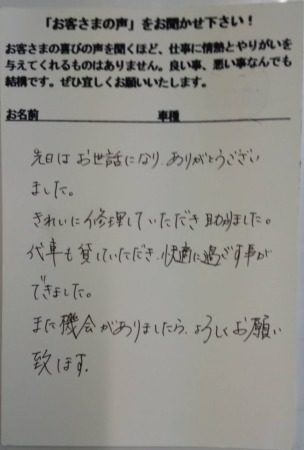 「お客さまの声」をお聞かせ下さい！
お客さまの喜びの声を聞くほど、仕事に情熱とやりがいを
与えてくれるものはありません。良い事、悪い事なんでも
結構です。ぜひ宜しくお願いいたします。
お名前 車種
先日はお世話になり、ありがとうござい
ました。
きれいに修理していただき助かりました。
代車も貸していただき、快適に過ごす事が
できました。
また機会がありましたら、よろしくお願い
致します。